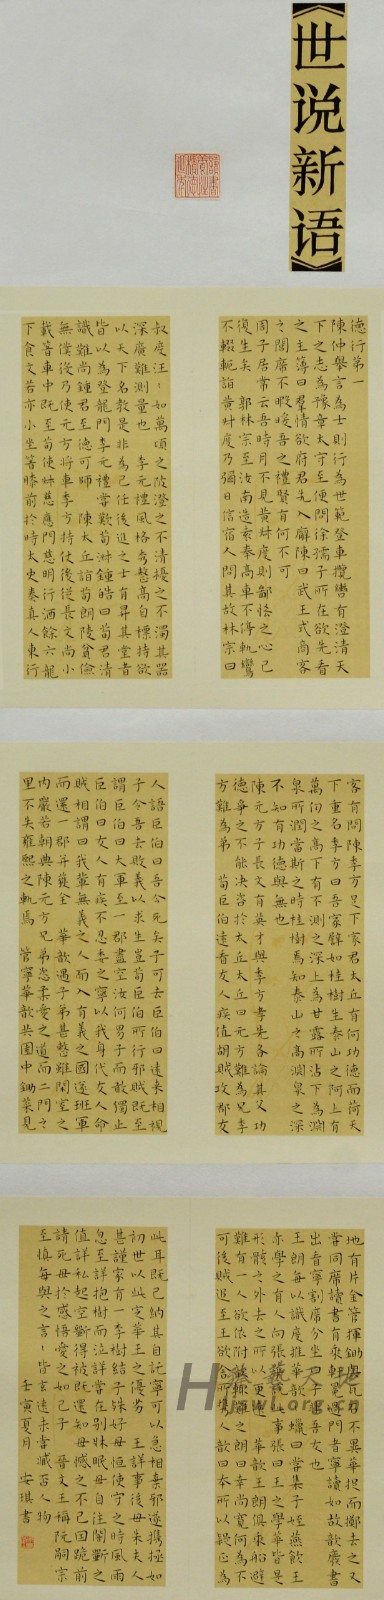 《世说新语》
德行第一
陳仲舉言為士則行為世範登車攬轡有澄清天
下之志為豫章太守至便問徐孺子所在欲先看
之主簿曰羣情欲府君先入廨陳曰武王式商容
之閭席不暇暖吾之禮賢有何不可
周子居常云吾時月不見黃叔度則鄙悋之心已
復生矣 郭林宗至汝南造袁奉高車不停軌鸞
不輟軛詣黃叔度乃彌日信宿人問其故林宗曰
叔度汪:如萬頃之陂澄之不清擾之不濁其器
深廣難測量也 李元禮風格秀整高自標持欲
以天下名教是非為己任後進之士有昇其堂者
皆以為登龍門 李元禮嘗歎荀淑鍾皓曰荀君清
識難尚鍾君至德可師 陳太丘詣荀朗陵貧儉
無僕役乃使元方將車季方持杖後從長文尚小
載箸車中既至荀使叔慈應門慈明行酒餘六龍
下食文若亦小坐箸膝前於時太史奏真人東行
客有問陳季方足下家君太丘有何功德而荷天
下重名季方曰吾家譬如桂樹生泰山之阿上有
萬仞之高下有不測之深上為甘露所沾下為淵
泉所潤當斯之時桂樹焉知泰山之高淵泉之深
不知有功德與無也
陳元方子長文有英才與季方孝先各論其父功
德爭之不能決咨於太丘太丘曰元方難為兄季
方難為弟 荀巨伯遠看友人疾值胡賊攻郡友
人語巨伯曰吾今死矣子可去巨伯曰遠來相視
子令吾去敗義以求生豈荀巨伯所行邪賊既至
謂巨伯曰大軍至一郡盡空汝何男子而敢獨止
巨伯曰友人有疾不忍委之寧以我身代友人命
賊相謂曰我輩無義之人而入有義之國遂班軍
而還一郡并獲全 華歆遇子弟甚整雖閒室之
內嚴若朝典陳元方兄弟恣柔愛之道而二門之
里不失雍熙之軌焉 管寧華歆共園中鋤菜見
地有片金管揮鋤與瓦石不異華捉而擲去之又
嘗同席讀書有乘軒冕過門者寧讀如故歆廢書
出看寧割席分坐曰子非吾友也
王朗每以識度推華歆歆蠟日嘗集子姪燕飲王
亦學之有人向張華說此事張曰王之學華皆是
形骸之外去之所以更遠 華歆王朗俱乘船避
難有一人欲依附歆輒難之朗曰幸尚寬何為不
可後賊追至王欲舍所攜人歆曰本所以疑正為
此耳既已納其自託寧可以急相棄邪遂攜拯如
初世以此定華王之優劣 王詳事後母朱夫人
甚謹家有一李樹結子殊好母恒使守之時風雨
忽至詳抱樹而泣詳嘗在別牀眠母自往闇斫之
值詳私起空斫得被既還知母憾之不已因跪前
請死母於感悟愛之如己子 晉文王稱阮嗣宗
至慎每與之言:皆玄遠未嘗臧否人物
壬寅夏月 安琪書